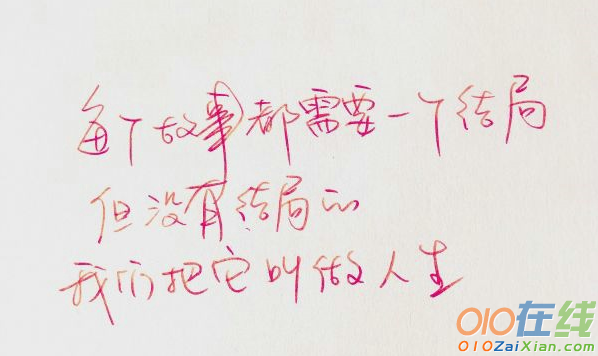 每个故事都需要一个结局
但没有结局的
我们把它叫做人生
010在线
010ZaiXian.com